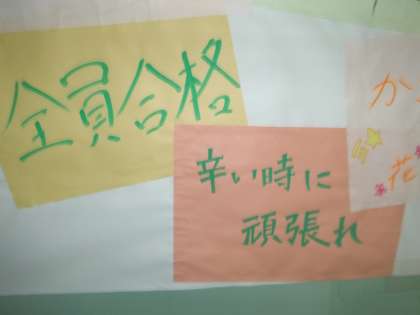 全員合格
辛い時に
頑張れ
か
花